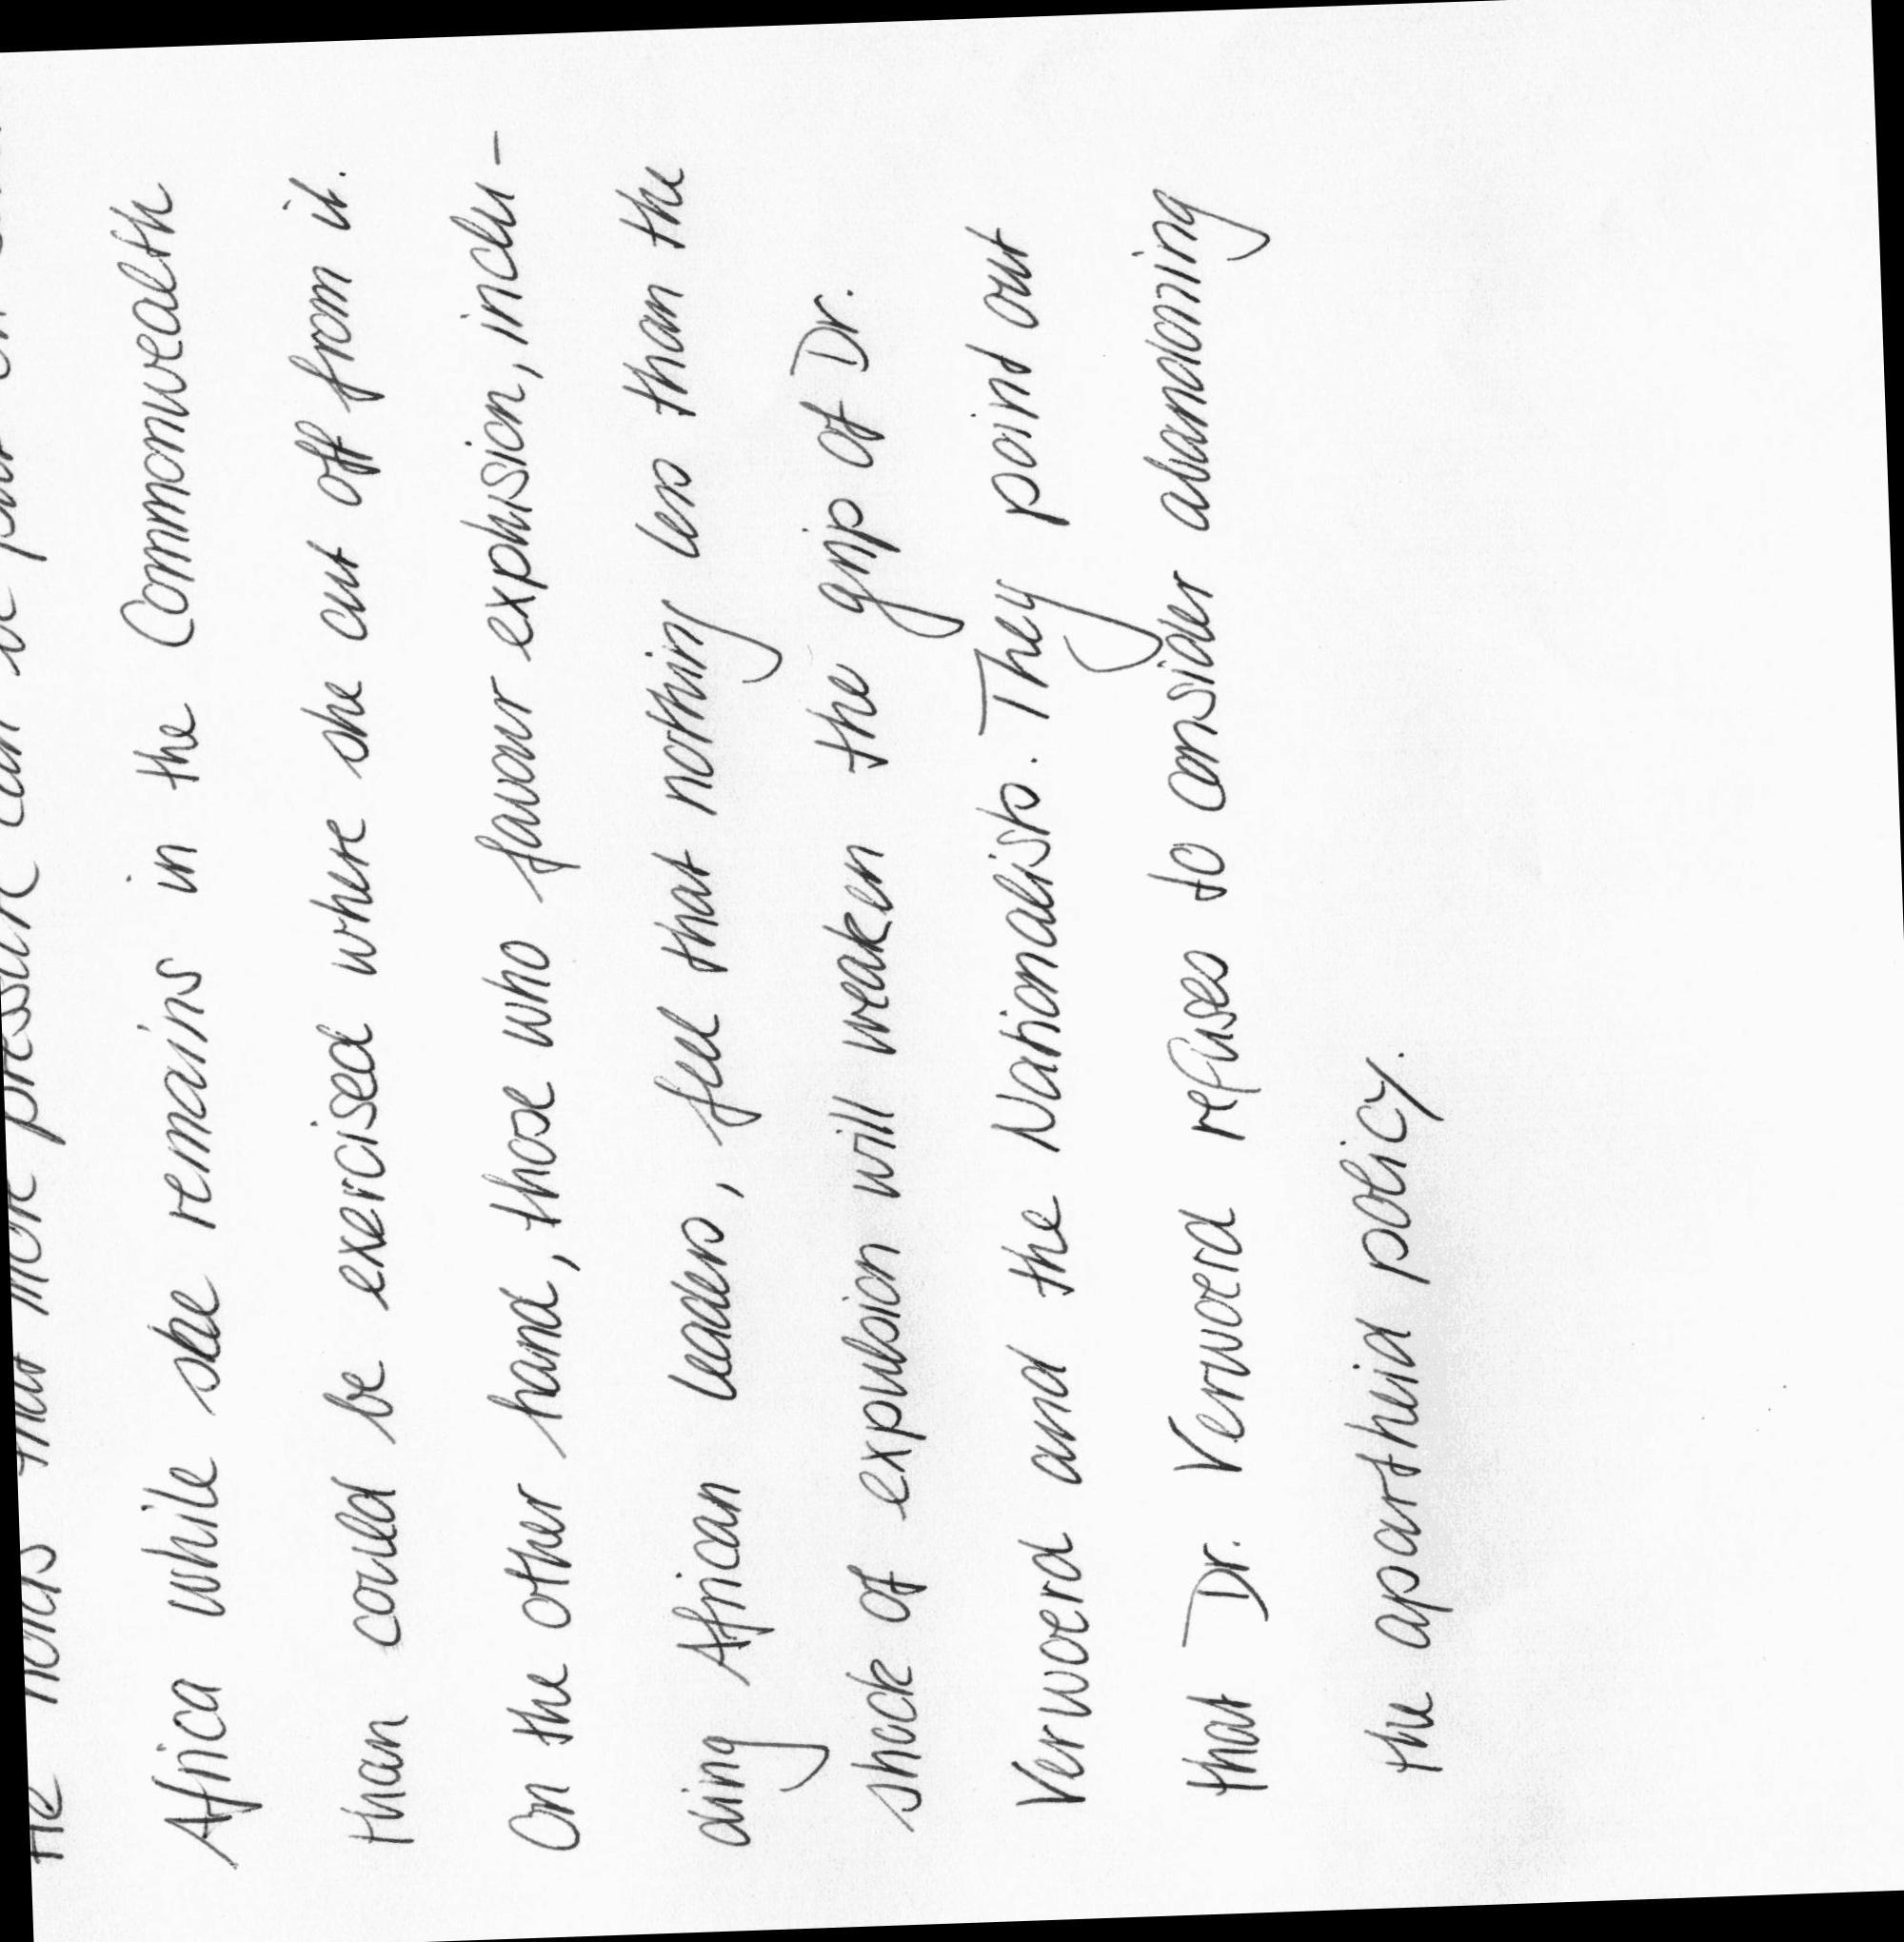 He holds that more pressure can be put on
Africa while she remains in the Commonwealth
than could be exercised where she cut off from it.
On the other hand, those who favour explusion, inclu-
ding African leaders, feel that nothing less than the
shock of expulsion will weaken the grip of Dr.
Verwoerd and the Nationalists. They point out
that Dr. Verwoerd refuses to consider abandoning
the apartheid policy.